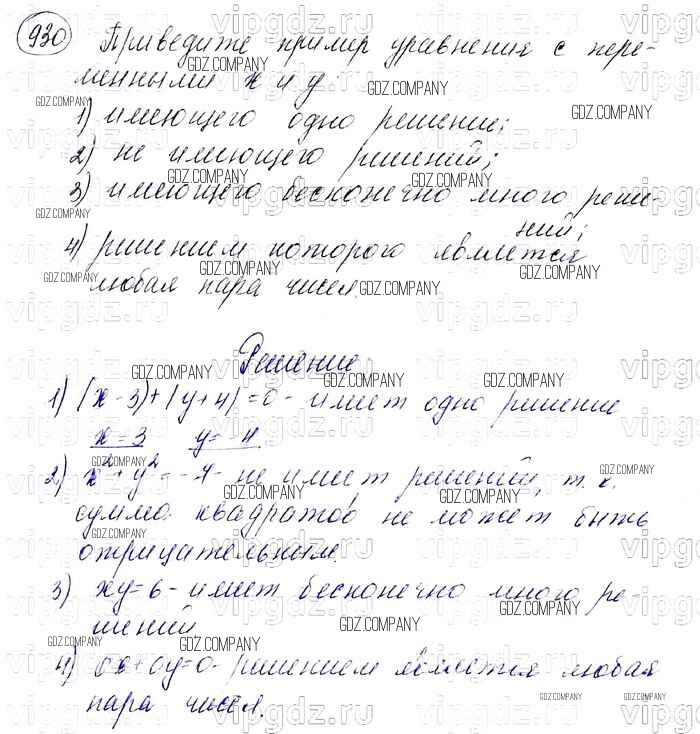 930 Приведите пример уравнения с пере-
менными x и y
1) имеющего одно решение;
2) не имеющего решений;
3) имеющего бесконечно много реше-
ний;
4) решением которого является
любая пара чисел.
Решение
1) |x-3|+|y+4|=0- имеет одно решение
x=3 y=-4
2) x²+y²=-4- не имеет решений, т. к.
сумма квадратов не может быть
отрицательным.
3) xy=6- имеет бесконечно много ре-
шений
4) 0x+0y=0- решением является любая
пара чисел.